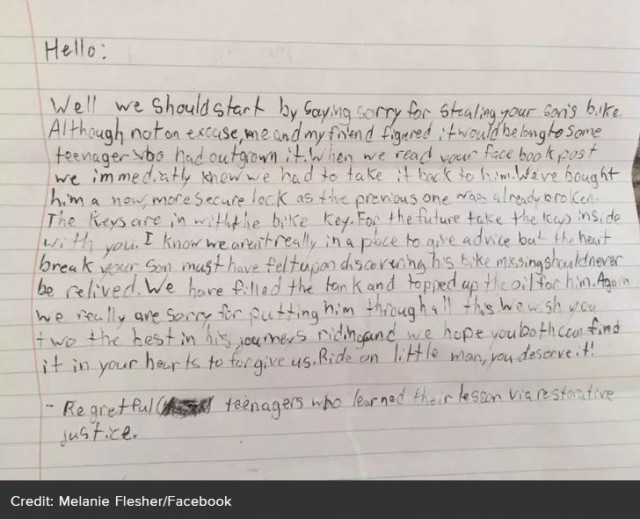 Hello:
Well we should start by saying sorry for stealing your son's bike.
Although not an excuse, me and my friend figured it would belong to some
teenager who had outgrown it. When we read your face book post
we immediatly knew we had to take it back to him. We've bought
him a new, more secure lock as the previous one was already broken.
The keys are in with the bike key. For the future take the keys inside
with you. I know we arent really in a place to give advice but the heart
break your son must have felt upon discovering his bike missing should never
be relived. We have filled the tank and topped up the oil for him. Again
we really are sorry for putting him through all this. We wish you
two the best in his journeys riding and we hope you both can find
it in your hearts to forgive us. Ride on little man, you deserve it!
- Regretful teenagers who learned their lesson via restorative
justice.
Credit: Melanie Flesher/Facebook